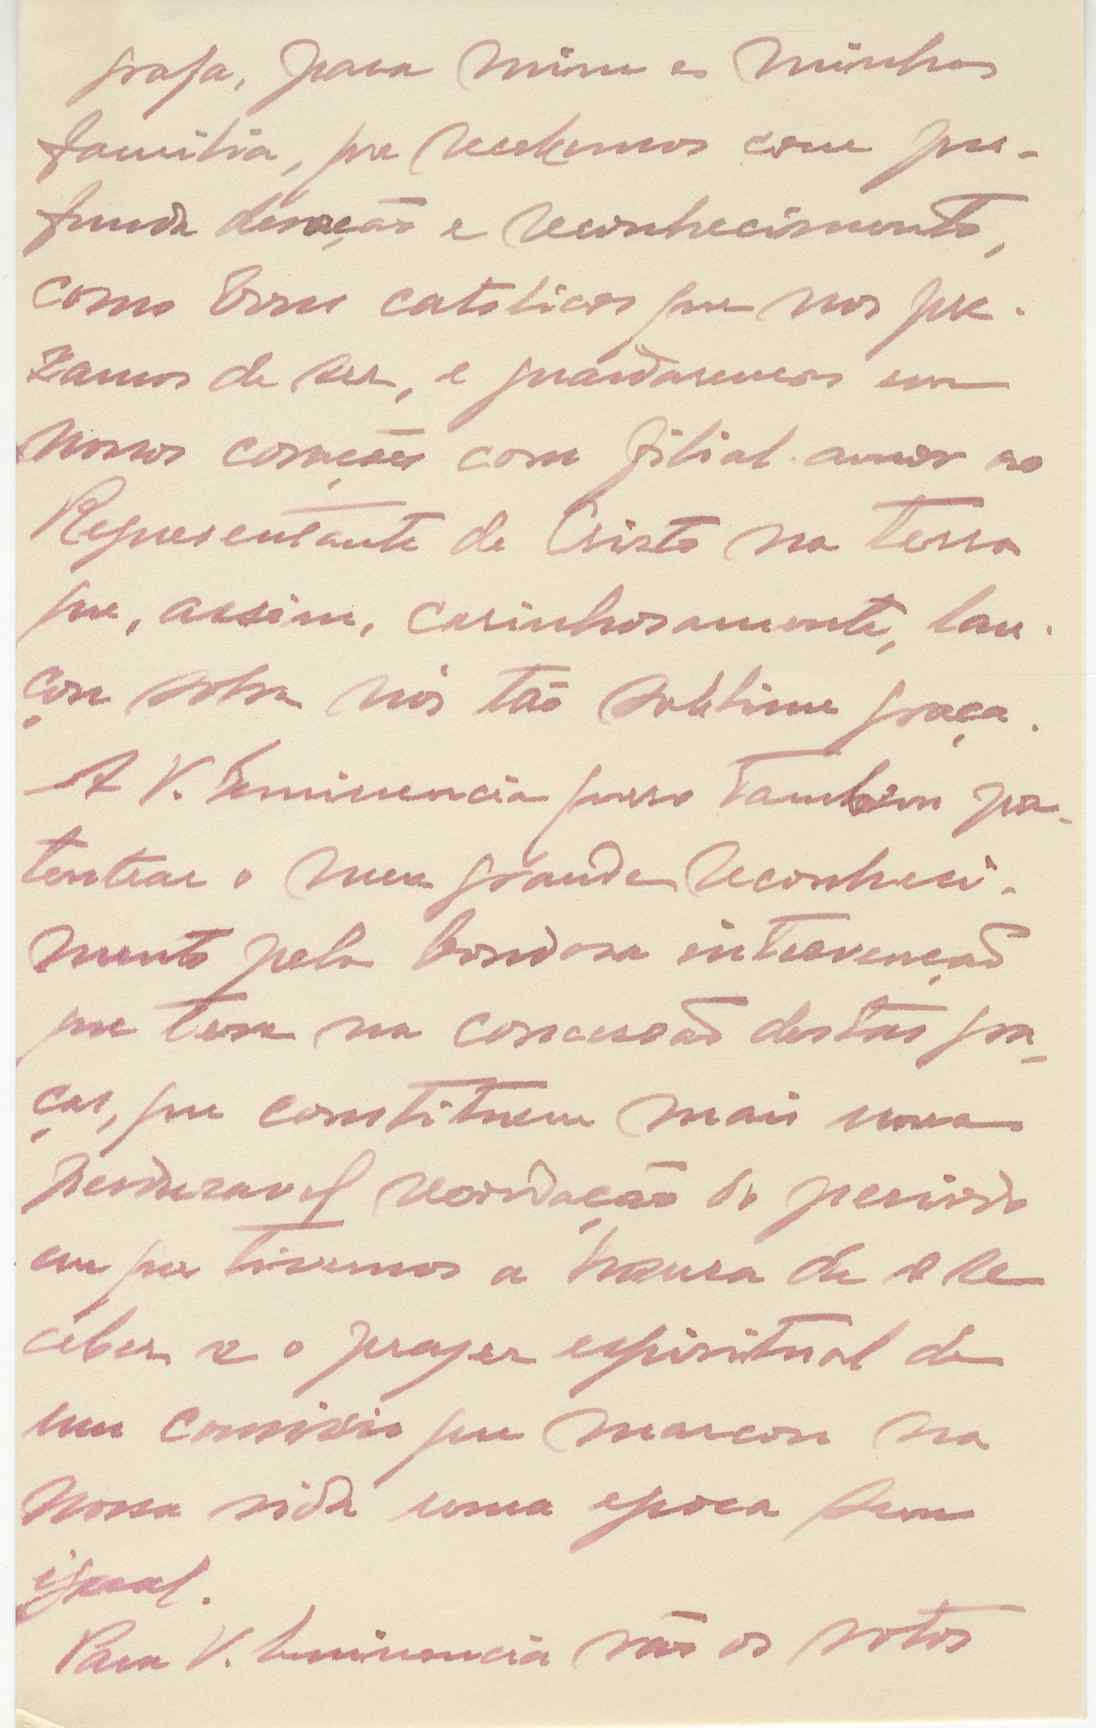 grafa, para mim e minha
familia, que recebemos com pro-
funda devoção e reconhecimento,
como bons catolicos que nos pre-
zamos de ser, e guardaremos em
nossos corações com filial amor ao
Representante de Cristo na terra
que, assim, carinhosamente, lan-
çou sobre nós tão sublime graça.
A V. Eminencia posso tambem pa-
tentear o meu grande reconheci-
mento pela bondosa intervenção
que teve na concessão destas gra-
ças, que constituem mais uma
perduravel recordação do periodo
em que tivemos a honra de o re
ceber e o prazer espiritual de
um convivio que marcou na
nossa vida uma epoca sem
igual.
Para V. Eminencia vão os votos